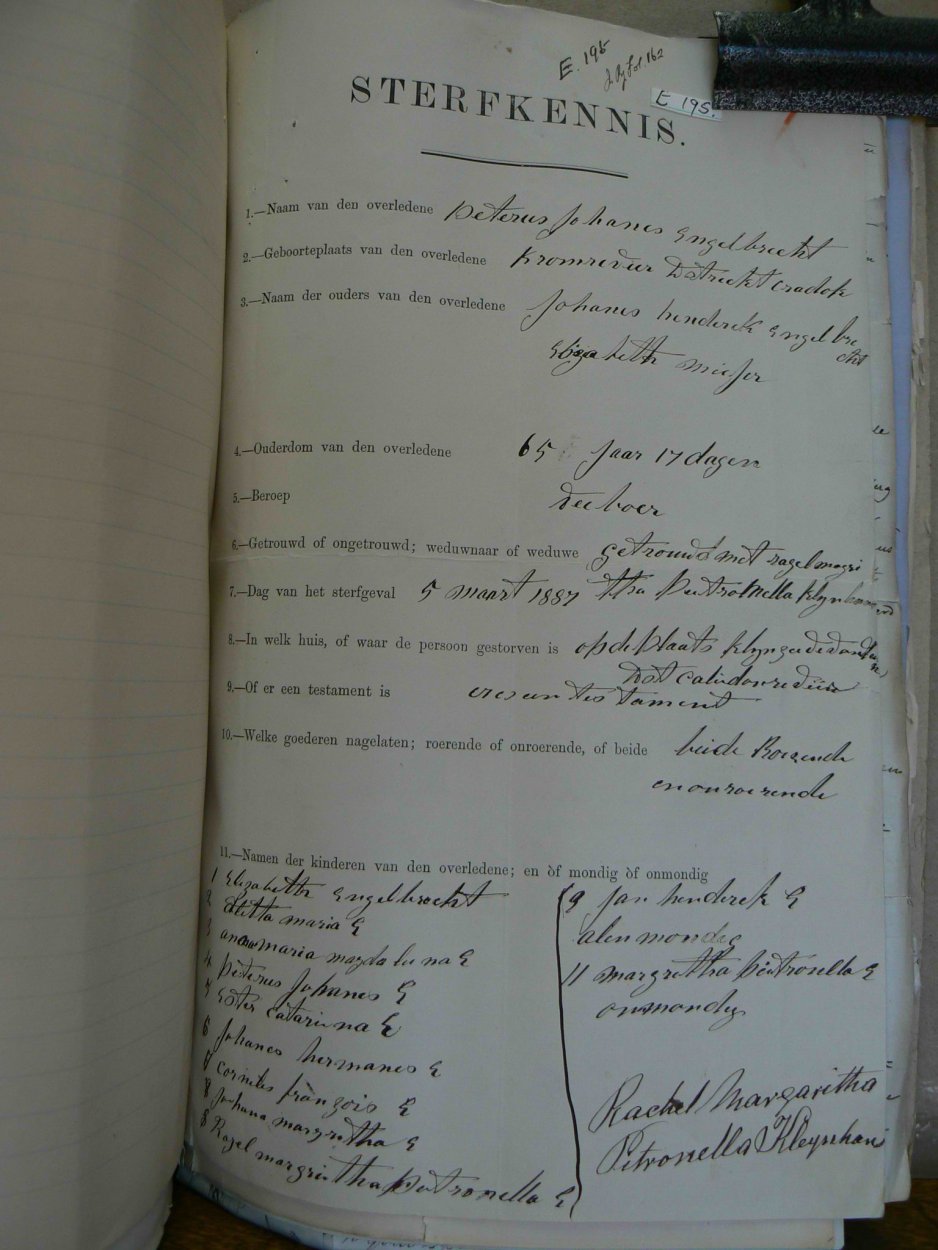 E. 195
E 195.
STERFKENNIS.
1.—Naam van den overledene Peterus Johanes Engelbrecht
2.—Geboorteplaats van den overledene Kromrevier Dstriekt cradok
3.—Naam der ouders van den overledene Johanes henderek Engelbre
cht
Elizabeth
4.—Ouderdom van den overledene 65 Jaar 17 dagen
5.—Beroep Veeboer
6.—Getrouwd of ongetrouwd; weduwnaar of weduwe getroud met ragel magri
7.—Dag van het sterfgeval 5 maart 1887 tha Peitronella
8.—In welk huis, of waar de persoon gestorven is op de Plaats
Dst
9.—Of er een testament is er es een testament
10.—Welke goederen nagelaten; roerende of onroerende, of beide beide Roerende
en onroerende
11.—Namen der kinderen van den overledene; en òf mondig òf onmondig
1 Elizabeth Engelbrecht
2 maria E
3 maria magdaleena E
4 Peterus Johanes E
5 Ester catarina E
6 Johanes hermanes E
7 françois E
8 Johana margretha E
8 Ragel margrietha Peitronella E
9 Jan henderek E
alen mondeg
11 margretha Peitronella E
onmondig
Rachel Margaritha
Petronella Kleynhans